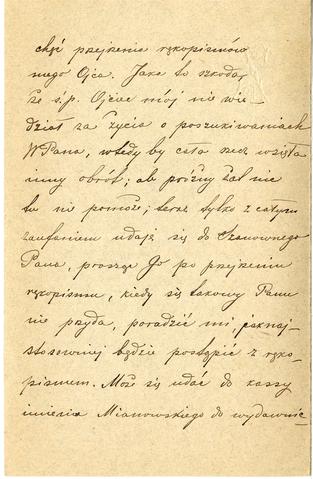 chęć przejrzenia rękopismów
mego Ojca. Jaka to szkoda,
że ś.p. Ojciec mój nie wie-
dział za życia o poszukiwaniach
WPana, wtedy by cała rzecz wzięła
inny obrót; ale próżny żal nic
tu nie pomoże; teraz tylko z całym
zaufaniem udaję się do Szanownego
Pana, prosząc Go po przejrzeniu
rękopismu, kiedy się takowy Panu
nie przyda, poradzić mi, jak naj-
stosowniej będzie postąpić z ręko-
pismem. Może się udać do kassy
imienia Mianowskiego do wydawnic-